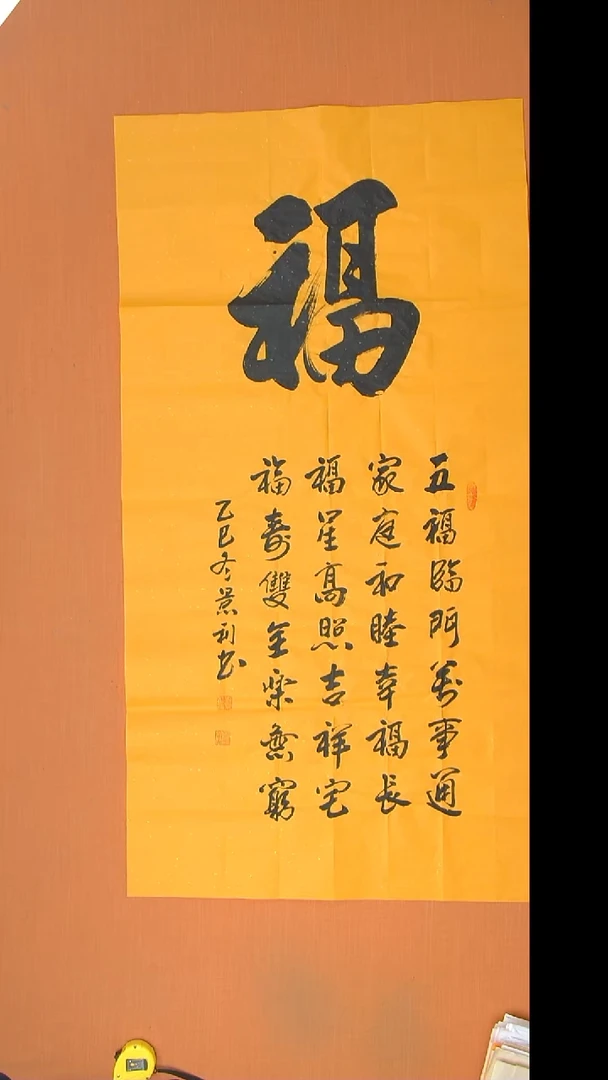 福
五福臨門萬事通
家庭和睦幸福長
福星高照吉祥宅
福壽雙全樂無窮
乙巳冬景利书